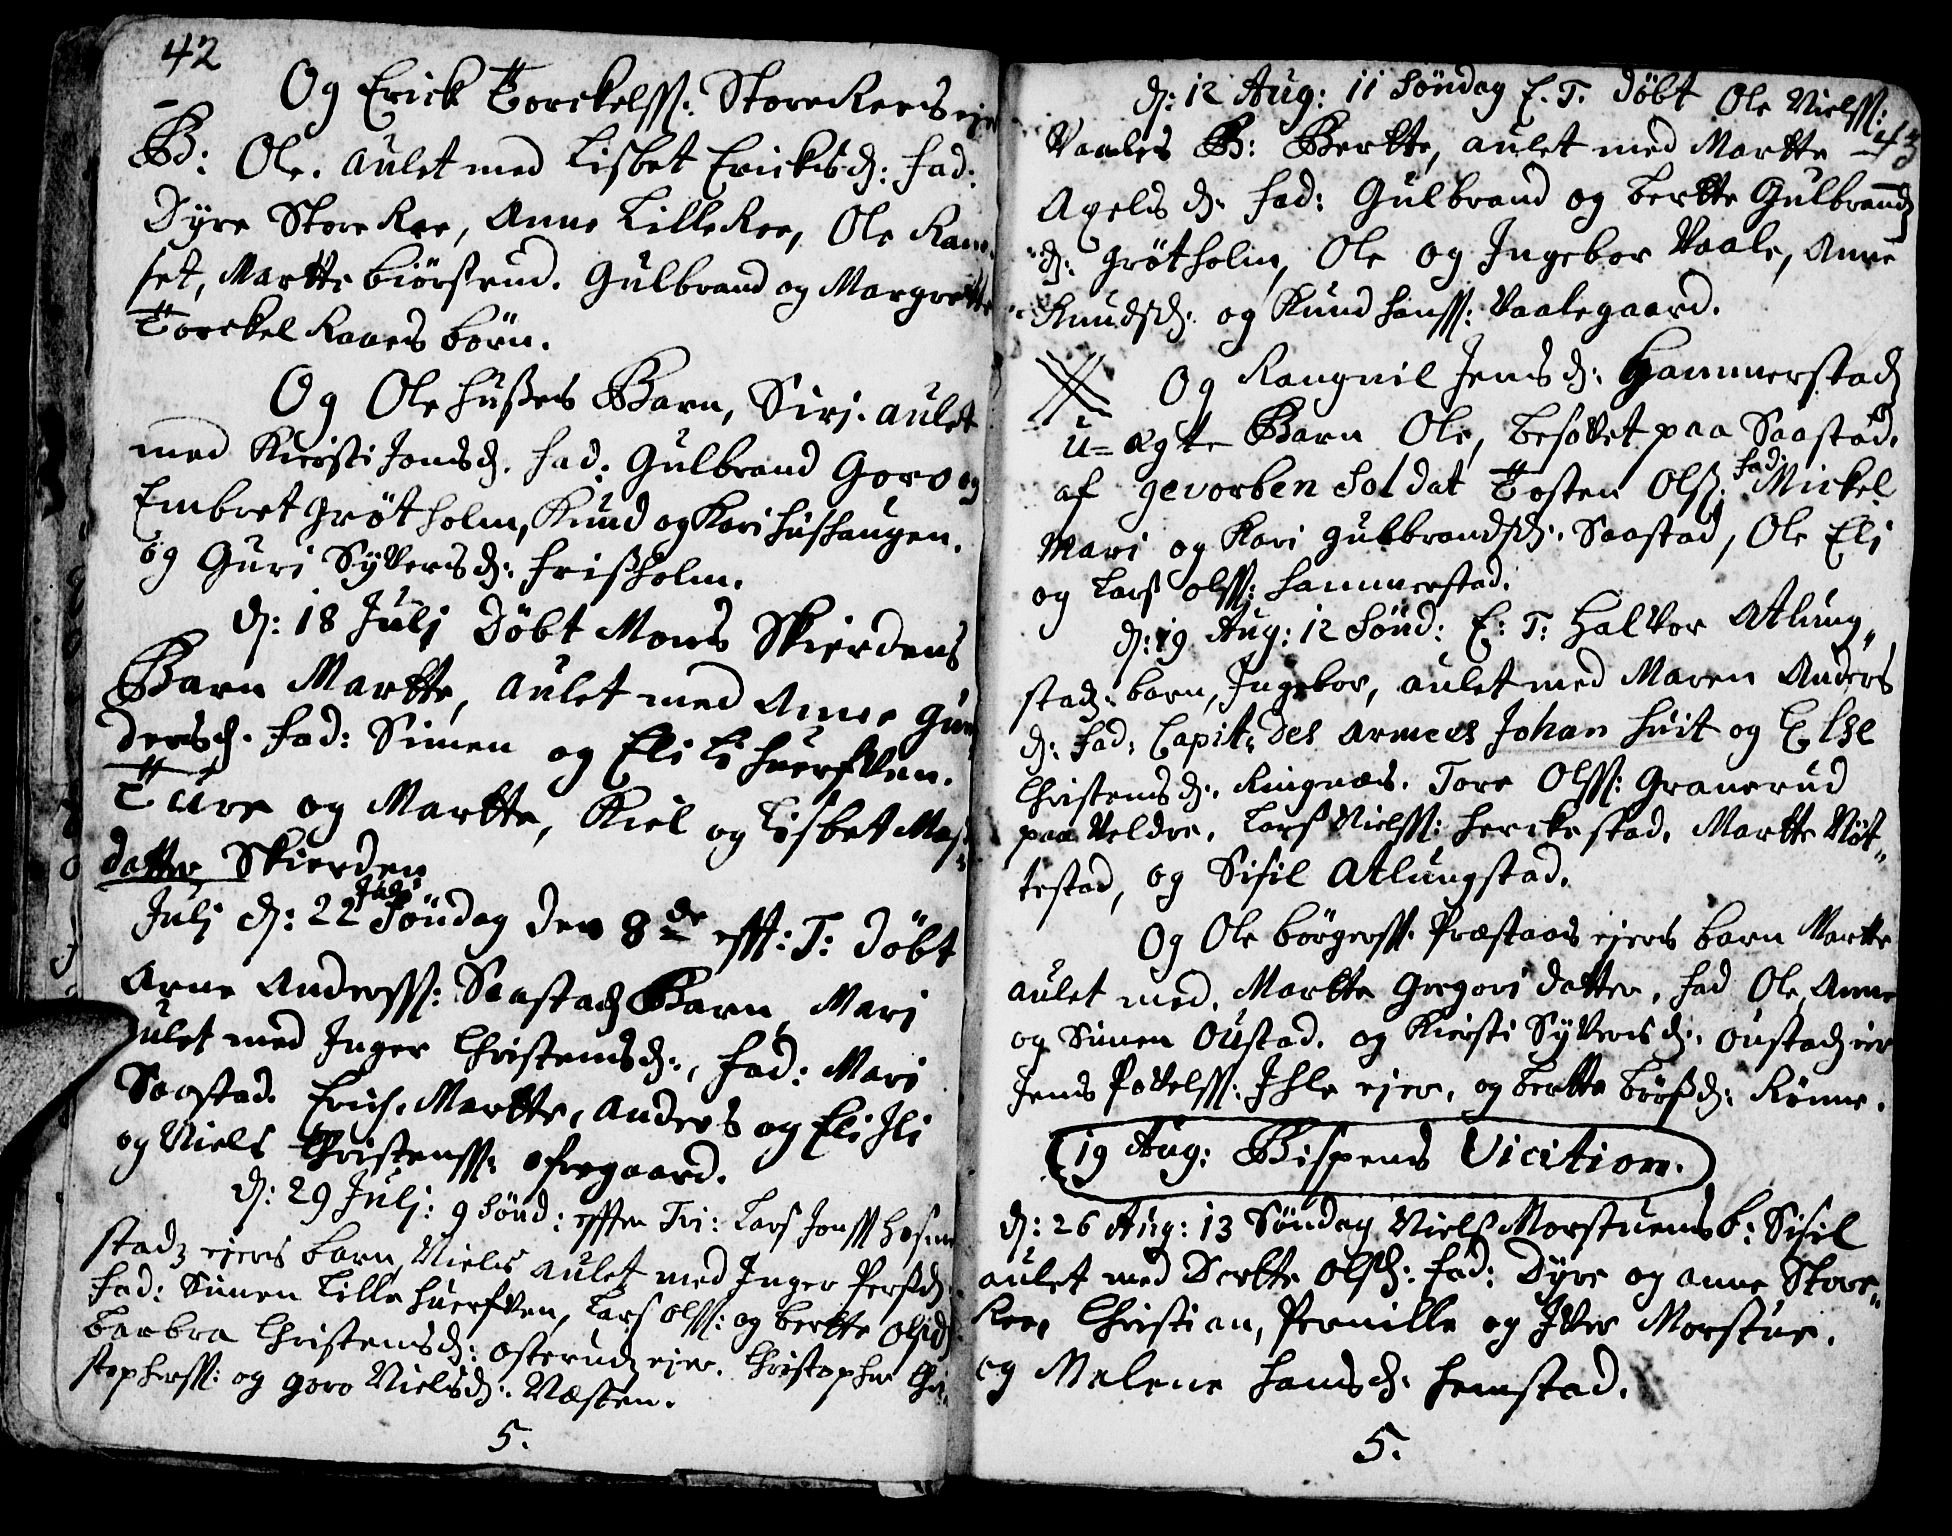 42
Og Erick Torckelss: Store Rees ejer
B: Ole. aulet med Lisbet Ericksd: fad:
Dyre Store Ree, Anne Lille Ree, Ole Rane
set, Martte biørserud. Gulbrand og Margrette
Torckel Raaes børn.
Og Ole Hußes Barn, Sirj. aulet
med Kiersti Jonsd. fad. Gulbrand Goro og
Embret grøtholm, Knud og Kari hushaugen.
og Guri Syversd: frisholm.
d: 18 Julj Döbt Mons Skierdens
Barn Martte, aulet med Anne Gun
dersd. fad: Simen og Eli Li huerfven.
Ture og Martte, Kiel og Lisbet Mas
datter Skierden
Julj d: 22 Söndag den 8de efft: T: Döbt
Arne Anderss: Saastad Barn, Mari
aulet med Inger Christensd:, fad: Mari
Saastad. Erich. Martte, Anders og Eli Ili
og Niels Christenss: ofregaard.
d: 29 Julj: 9 Sönd: efften Tri: Lars Jonss
stadz ejers barn, Niels aulet med Inger Persd
fad: Simen Lille huerfven, Lars olss: og bertte Olsd
barbra Christensd: osterudz ejer. Christopher Chri
stopherss: og goro Nielsd: Næsten.
5.
d: 12 Aug: 11 Söndag E. T. Döbt Ole Nielss:
43
Vaales B: Bertte, aulet med Martte
Axels d. fad: Gulbrand og bertte Gulbrandz
d: grøtholm, Ole og Ingebor Vaale, Anne
Knudsd. og Knud hanss: Vaalegaard.
Og Rangnil Jensd: Hammerstad
u=ægte Barn Ole, besovet paa Saastad.
af gevorben Soldat Tosten Olss: fad: Mickel
Mari og Kari gulbrandsd. Saastad, Ole Eli
og Lars olss: hammerstad.
d: 19 Aug: 12 Sönd: E: T: Halvor Atlung
stad: barn, Ingebor, aulet med Maren Anders
d: fad: Capit: des Armees Johan huit og Else
Christensd. Ringnæs. Tore Olss: Granerud
paa Veldre. Lars Nielss: herckestad. Martte Nöt
testad, og Sisil Atlungstad.
Og Ole børgerss. Præstaas ejers barn Martte
aulet med. Martte Gregori datter, fad Ole, Anne
og Simen Oustad. og Kiersti Syversd. oustad ejer
Jens Povelss: Ihle ejer, og bertte børsd: Rønne.
19 Aug: Bispens Vicition.
d: 26 Aug: 13 Söndag Niels Morstuens b: Sisil
aulet med Dortte Olsd: fad: Dyre og anne Store
Ree, Christian, Pernille og Iver Morstue.
og Malene hansd. hemstad.
5.